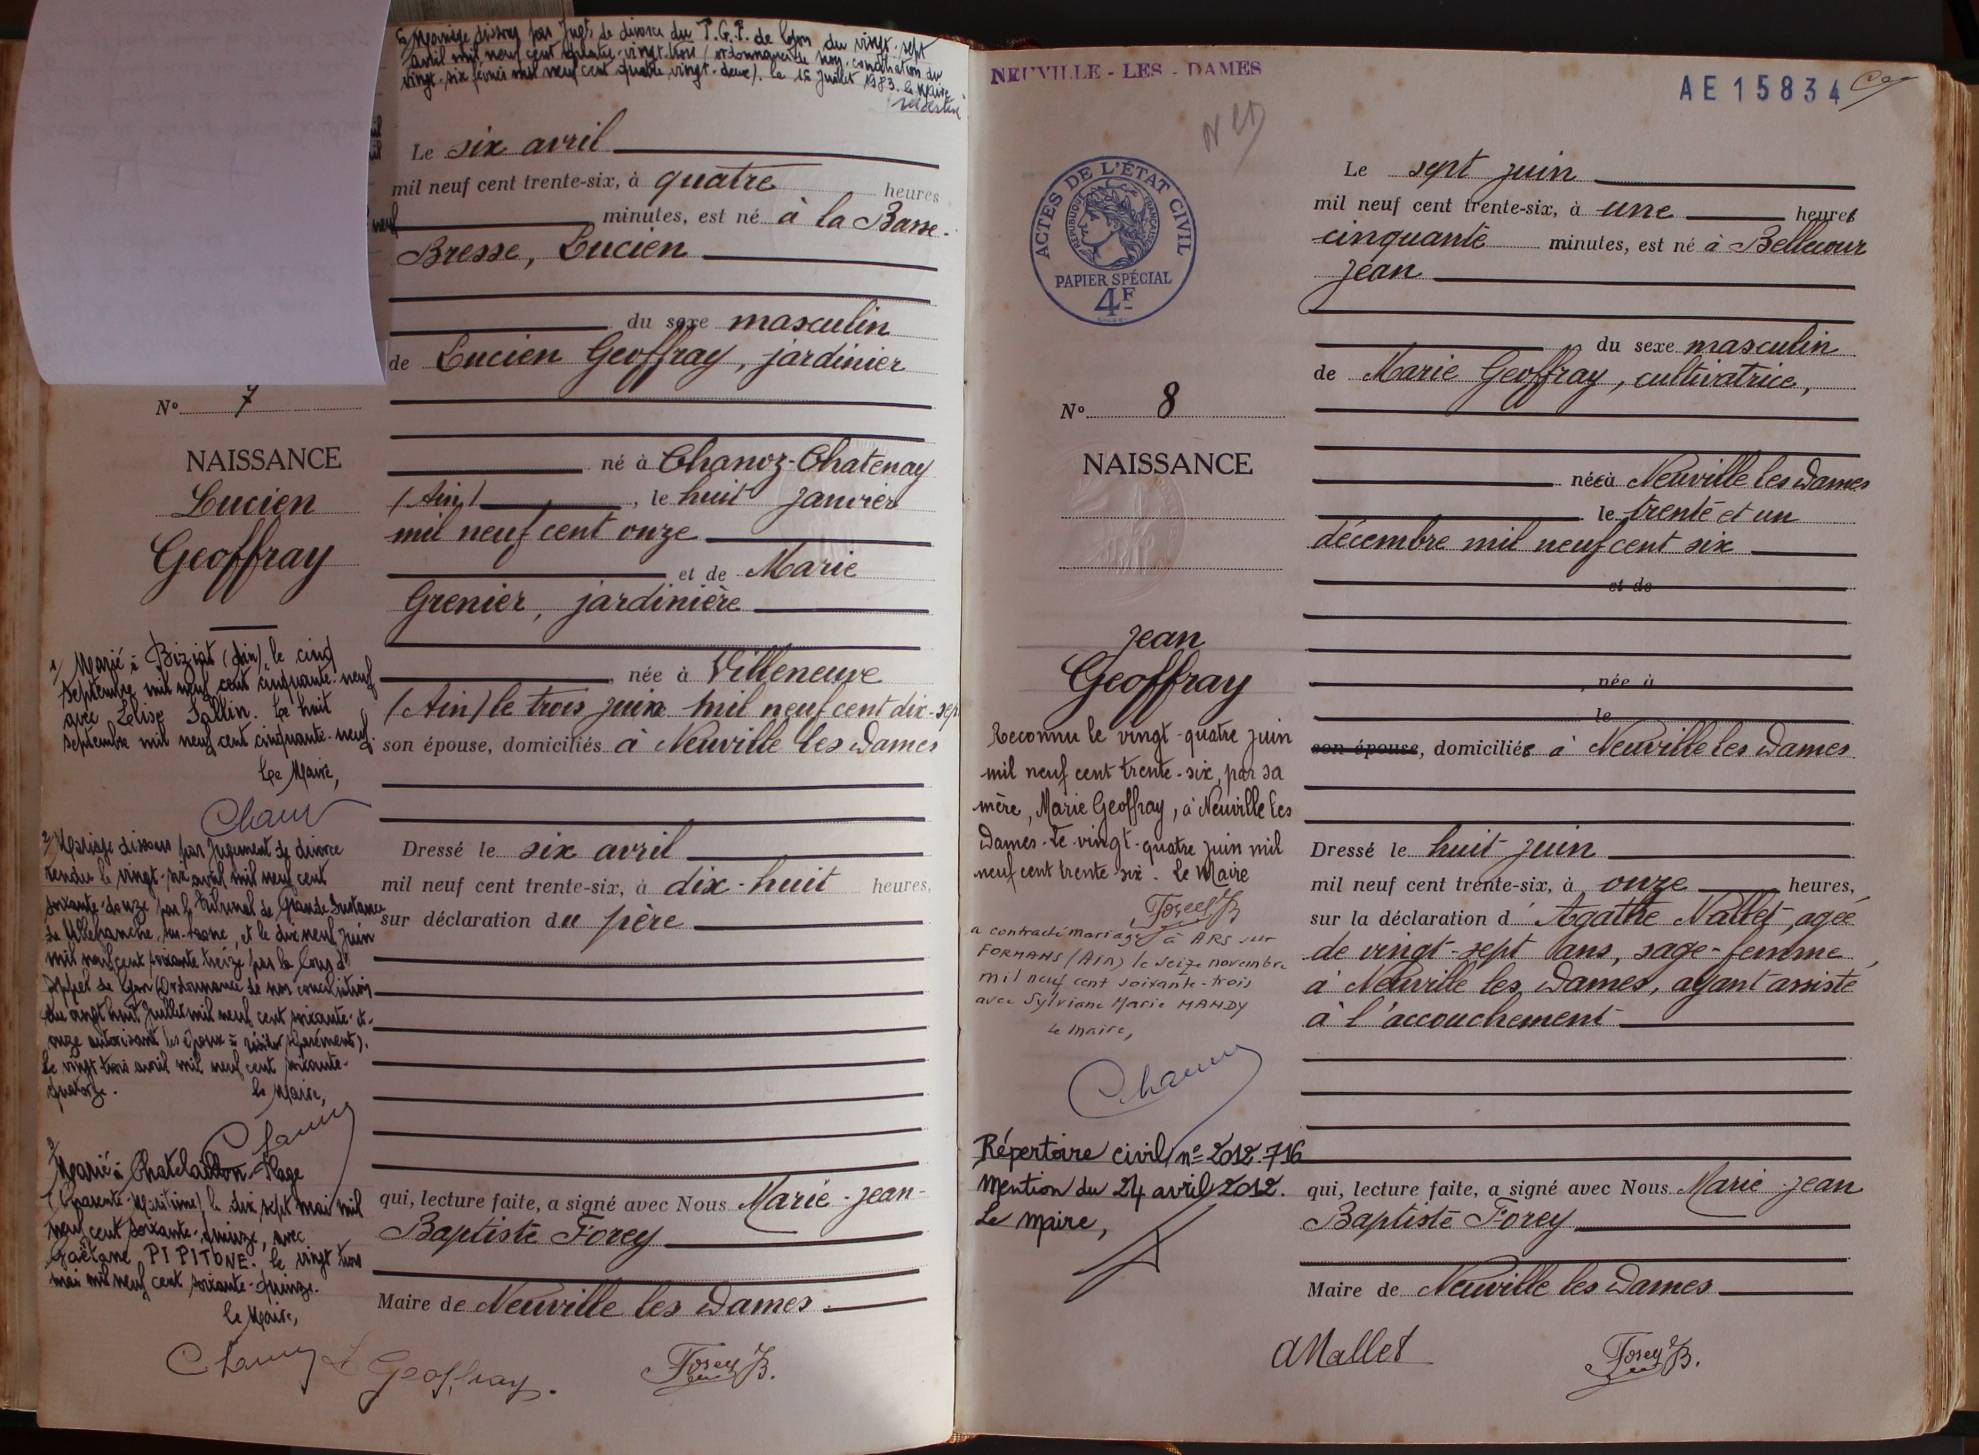 4) Mariage dissous par Jugt de divorce du T.G.I. de Lyon du vingt-sept
avril mil neuf cent quatre-vingt-trois (ordonnance de non conciliation du
vingt-six février mil neuf cent quatre vingt-deux). le 15 Juillet 1983. le Maire
Le six avril
mil neuf cent trente-six, à quatre heures
minutes, est né à la Basse-
Bresse, Lucien
du sexe masculin
de Lucien Geoffray, jardinier
né à Chanoz-Chatenay
(Ain), le huit janvier
mil neuf cent onze
et de Marie
Grenier, jardinière
née à Villeneuve
(Ain) le trois juin mil neuf cent dix-sept
son épouse, domiciliés à Neuville les Dames
Dressé le six avril
mil neuf cent trente-six, à dix-huit heures,
sur déclaration du père
qui, lecture faite, a signé avec Nous Marie-Jean-
Baptiste Forey
Maire de Neuville les Dames.
N° 7
NAISSANCE
Lucien
Geoffray
1) Marié à Biziat (Ain), le cinq
septembre mil neuf cent cinquante-neuf
avec Sallin. Le huit
septembre mil neuf cent cinquante-neuf.
Le Maire,
2) Mariage dissous par Jugement de divorce
rendu le vingt-six avril mil neuf cent
soixante-douze par le Tribunal de Grande Instance
de Villefranche-sur-Saone, et le dix neuf juin
mil neuf cent soixante treize par la Cour d'
Appel de Lyon (Ordonnance de non conciliation
du vingt huit Juillet mil neuf cent soixante-et-
onze autorisant les époux à résider séparément).
Le vingt trois avril mil neuf cent soixante-
quatorze. le Maire,
3) Marié à Chatelaillon-Plage
(Charente-Maritime) le dix sept mai mil
neuf cent soixante-quinze, avec
Gaëtane PIPITONE. le vingt trois
mai mil neuf cent soixante-quinze.
le Maire,
L Geoffray. Forey JB.
NEUVILLE-LES-DAMES
AE15834
NLD
ACTES DE L'ÉTAT CIVIL
RÉPUBLIQUE FRANÇAISE
PAPIER SPÉCIAL
4F
Le sept juin
mil neuf cent trente-six, à une heure
cinquante minutes, est né à Bellecour
Jean
du sexe masculin
de Marie Geoffray, cultivatrice,
née à Neuville les Dames
le trente et un
décembre mil neuf cent six
et de
, née à
le
son épouse, domiciliée à Neuville les Dames
Dressé le huit juin
mil neuf cent trente-six, à onze heures,
sur la déclaration d'Agathe Mallet, agée
de vingt-sept ans, sage-femme
à Neuville les Dames, ayant assisté
à l'accouchement
qui, lecture faite, a signé avec Nous Marie Jean
Baptiste Forey
Maire de Neuville les Dames
N° 8
NAISSANCE
Jean
Geoffray
Reconnu le vingt-quatre juin
mil neuf cent trente-six, par sa
mère, Marie Geoffray, à Neuville les
Dames. Le vingt-quatre juin mil
neuf cent trente six. Le Maire
Forey JB
a contracté mariage à ARS sur
FORMANS (AIN) le seize novembre
mil neuf cent soixante-trois
avec Sylviane Marie MANDY
Le Maire,
Répertoire civil n° 2012.716
Mention du 24 avril 2012.
Le Maire,
AMallet Forey JB.